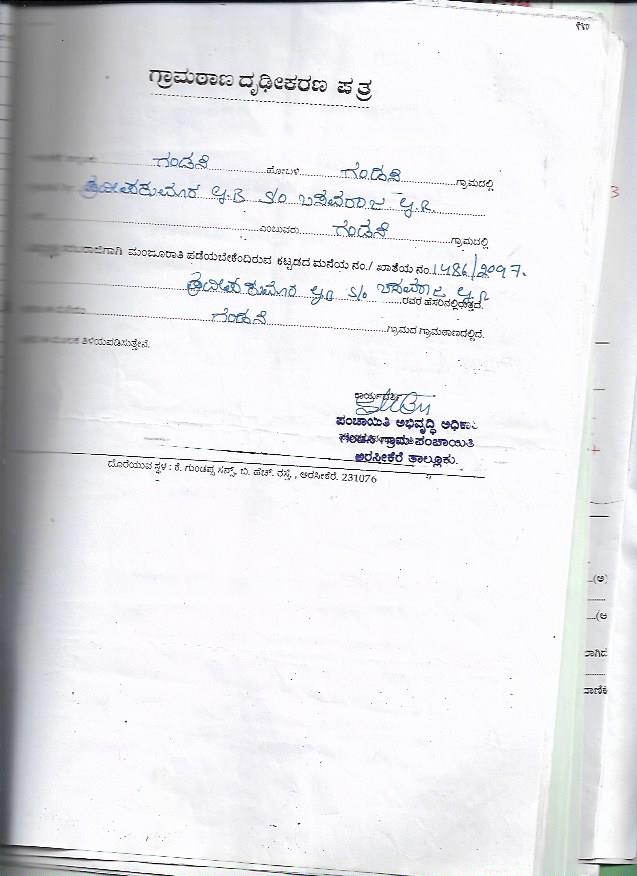 ೯೪೦
ಗ್ರಾಮಠಾಣ ದೃಢೀಕರಣ ಪತ್ರ
ಗಂಡಸಿ ಹೋಬಳಿ ಗಂಡಸಿ ಗ್ರಾಮದಲ್ಲಿ
S/o ಬಸವರಾಜ
ಎಂಬುವರು ಗಂಡಸಿ ಗ್ರಾಮದಲ್ಲಿ
ಮಂಜೂರಾತಿ ಪಡೆಯಬೇಕೆಂದಿರುವ ಕಟ್ಟಡದ ಮನೆಯ ನಂ./ ಖಾತೆಯ ನಂ. 1486/2097.
S/o ಬಸವರಾಜ ರವರ ಹೆಸರಿನಲ್ಲಿರುತ್ತದೆ.
ಗಂಡಸಿ ಗ್ರಾಮದ ಗ್ರಾಮಠಾಣದಲ್ಲಿದೆ.
ಮೂಲಕ ತಿಳಿಯಪಡಿಸುತ್ತೇನೆ.
ಕಾರ್ಯದರ್ಶಿ
ಪಂಚಾಯಿತಿ ಅಭಿವೃದ್ಧಿ ಅಧಿಕಾ
ಗಂಡಸಿ ಗ್ರಾಮ ಪಂಚಾಯಿತಿ
ಅರಸೀಕೆರೆ ತಾಲ್ಲೂಕು.
ದೊರೆಯುವ ಸ್ಥಳ : ಕೆ. ಗುಂಡಪ್ಪ ಸನ್ಸ್, ಬಿ. ಹೆಚ್. ರಸ್ತೆ, ಅರಸೀಕೆರೆ. 231076
3
(ಅ)
(ಆ